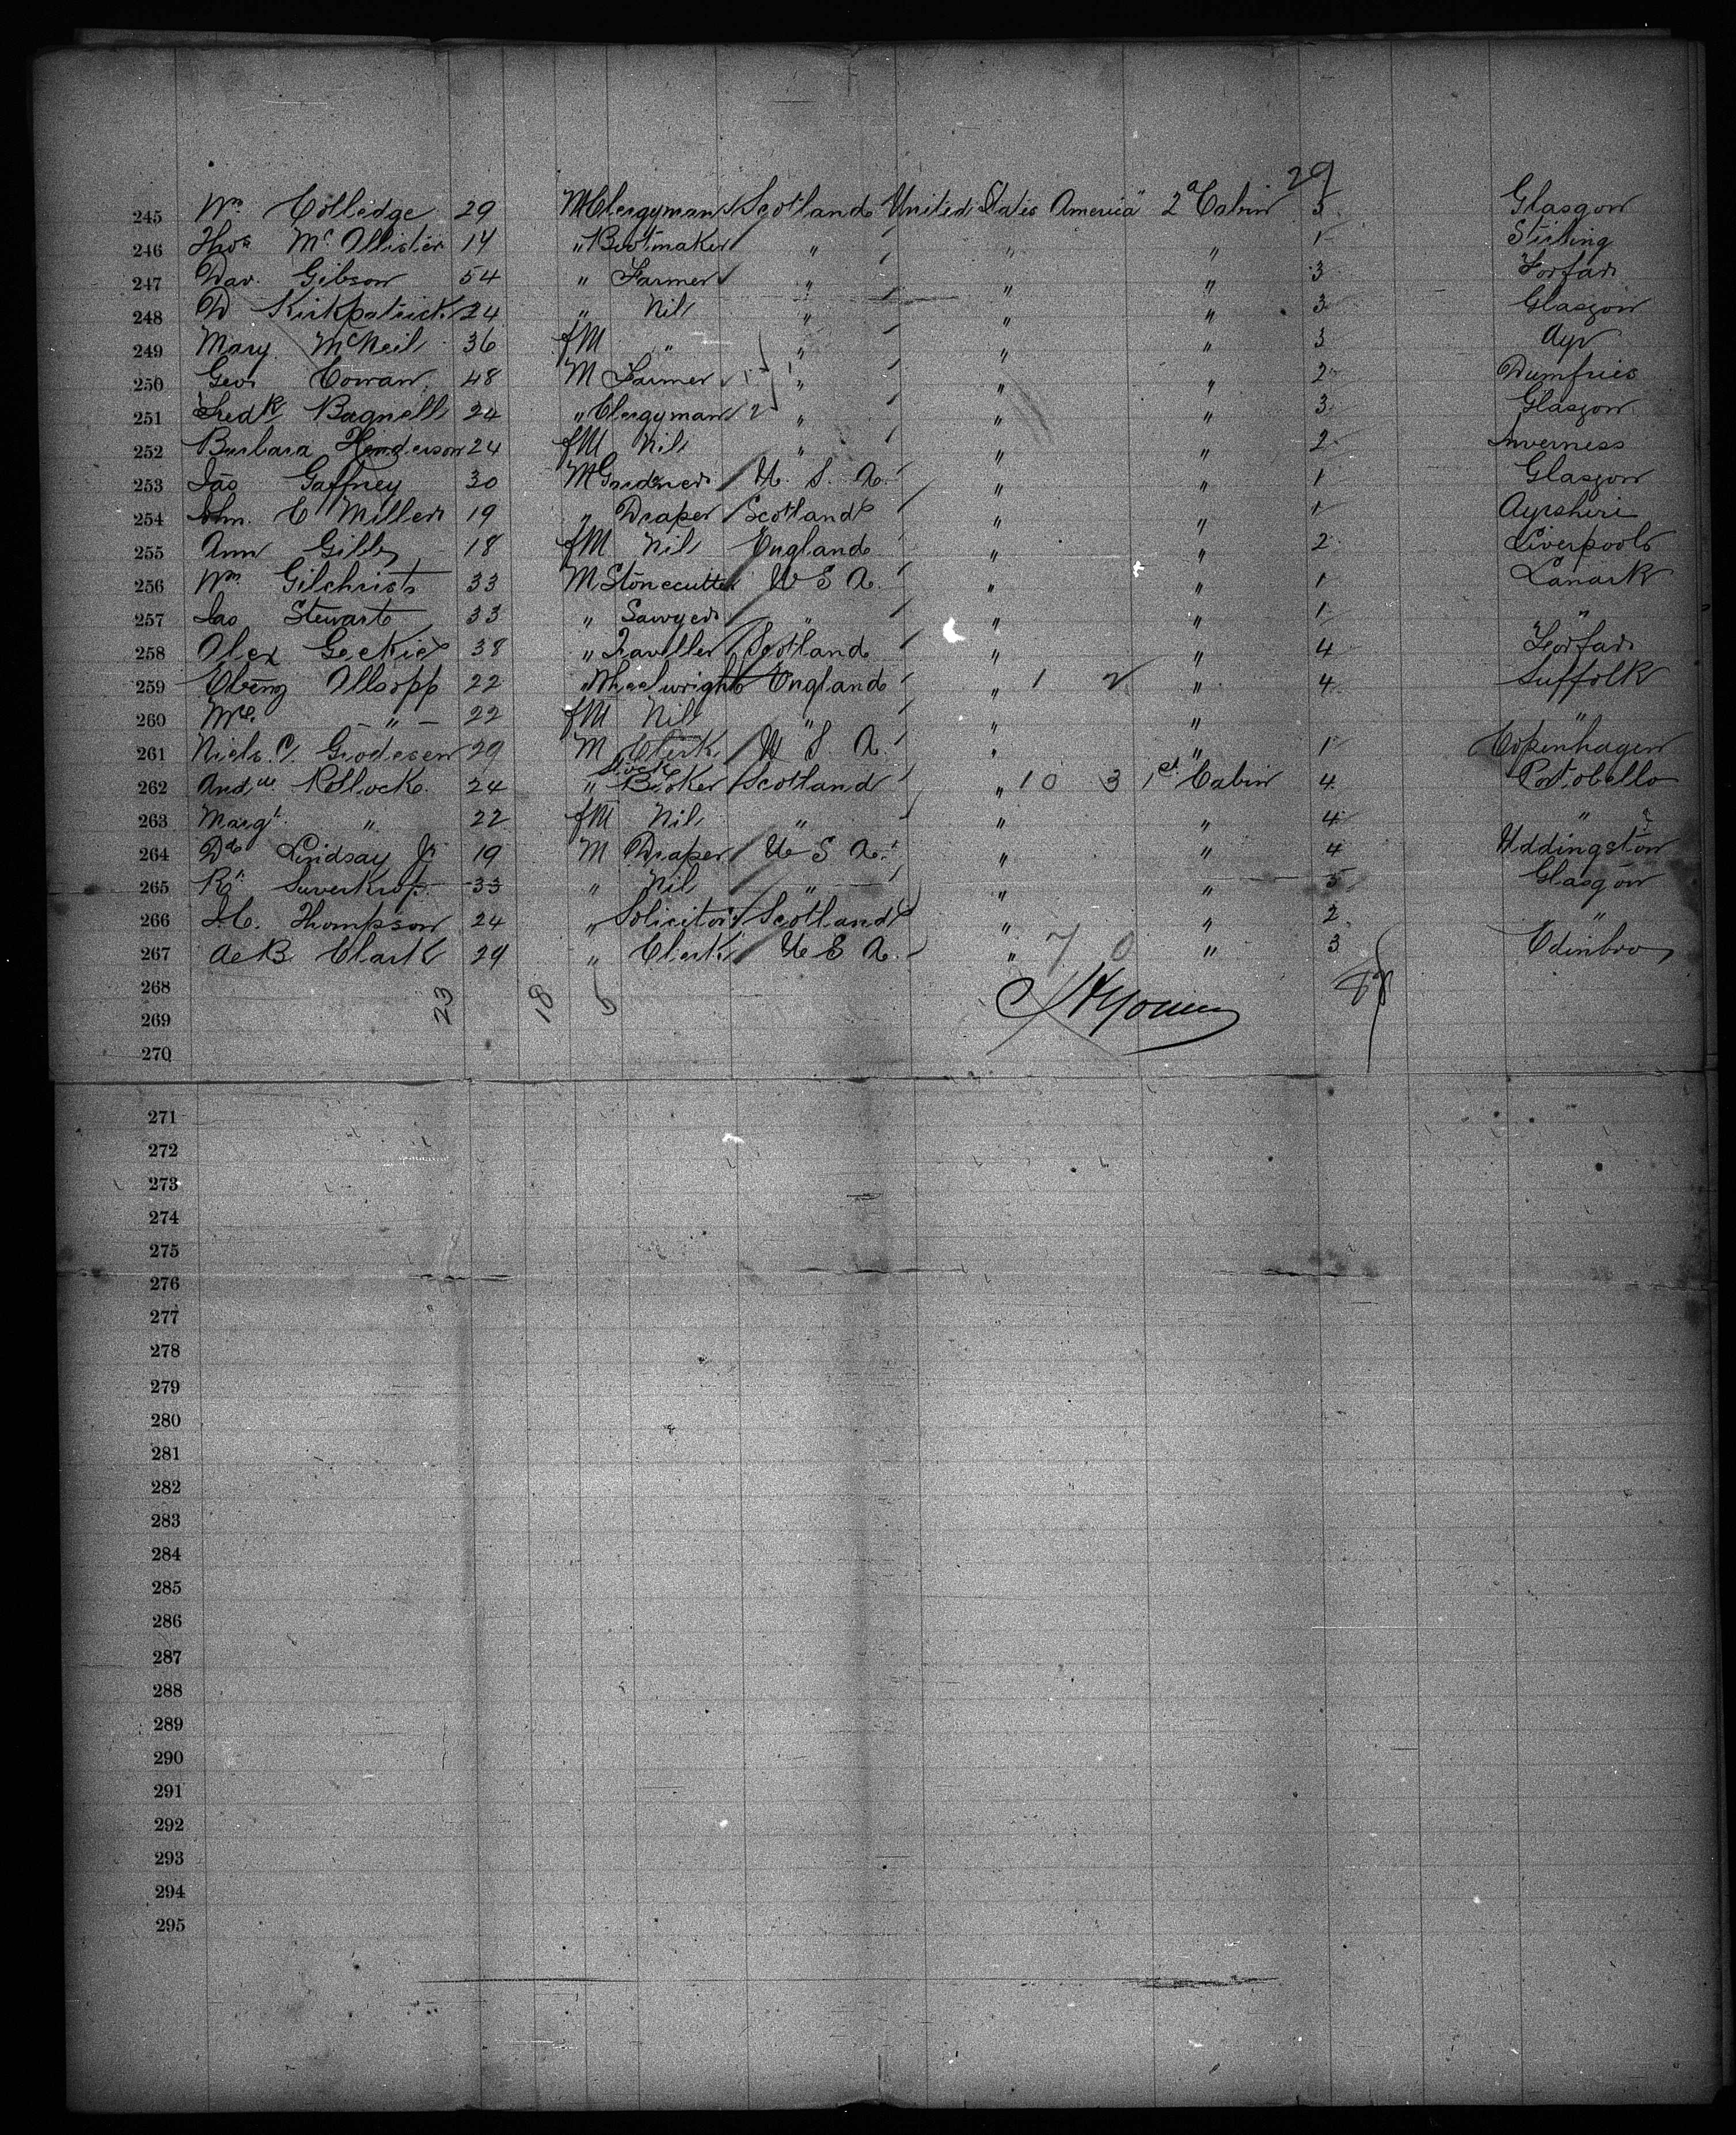 29
245 Wm Colledge 29 M Clergyman Scotland United States America 2d Cabin 3 Glasgow
246 Thos McAllister 14 " Bootmaker " " " 1 Stirling
247 Dav. Gibson 54 " Farmer " " " 3 Forfar
248 D Kirkpatrick 24 " Nil " " " 3 Glasgow
249 Mary McNeil 36 fM " " " " 3 Ayr
250 Geo Cowan 48 M Farmer " " " 2 Dumfries
251 Fredk Bagnell 24 " Clergyman " " " 3 Glasgow
252 Barbara Henderson 24 fM Nil " " " 2 Inverness
253 Jas Gaffney 30 M Gardner U. S. A. " " 1 Glasgow
254 Jhn. C Miller 19 " Draper Scotland " " 1 Ayrshire
255 Ann Gilby 18 fM Nil England " " 2 Liverpool
256 Wm Gilchrist 33 M Stonecutter U S A. " " 1 Lanark
257 Jas Stewart 33 " Sawyer " " " 1 "
258 Alex Geekie 38 " Traveller Scotland " " 4 Forfar
259 Ebeng Allsopp 22 " Wheelwright England " 1 2 " 4 Suffolk
260 Mrs. - " - 22 fM Nil " " " "
261 Niels. P. Grodesen 29 M Clerk U S. A. " " 1 Copenhagen
262 Andw Pollock. 24 " Stock Broker Scotland " 10 3 1st Cabin 4 Portobello
263 Margt " 22 fM Nil " " " 4 "
264 Dd Lindsay Jr 19 M Draper U S A. " " 4 Uddingston
265 Rt Suverkrop 33 " Nil " " " 5 Glasgow
266 J.C. Thompson 24 " Solicitor Scotland " " 2 "
267 A B Clark 29 " Clerk U S A. " 7 0 " 3 Edinbro
268 23 18 5
269
270
271
272
273
274
275
276
277
278
279
280
281
282
283
284
285
286
287
288
289
290
291
292
293
294
295